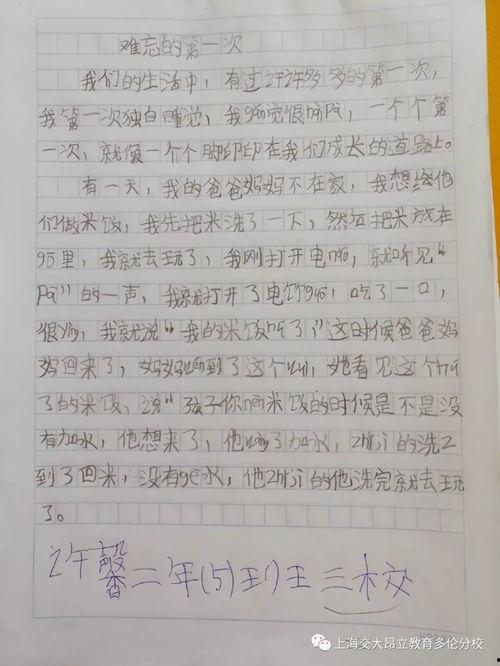 难忘的第一次
我们的生活中，有过许许多多的第一次，
我第一次独自睡觉，我觉很pa，一个个第
一次，就像一个个脚印印在我们成长的道路上。
有一天，我的爸爸妈妈不在家，我想给他
们做米饭，我先把米洗了一下，然后把米放在
里，我就去玩了，我刚打开电，就听见“
pa”的一声，我就打开了电饭guo，吃了一口，
很ying，我就说“我的米饭吃了”这时候爸爸妈
妈回来了，妈妈到了这个，她看见这个
了的米饭，说“孩子你米饭的时候是不是没
有加水，他想来了，他了加水，zhi ji的洗
到了四米，没有ge水，他zhi ji的他洗完就去玩
了。
馨二年(5)王三校
上海交大昂立教育多伦分校